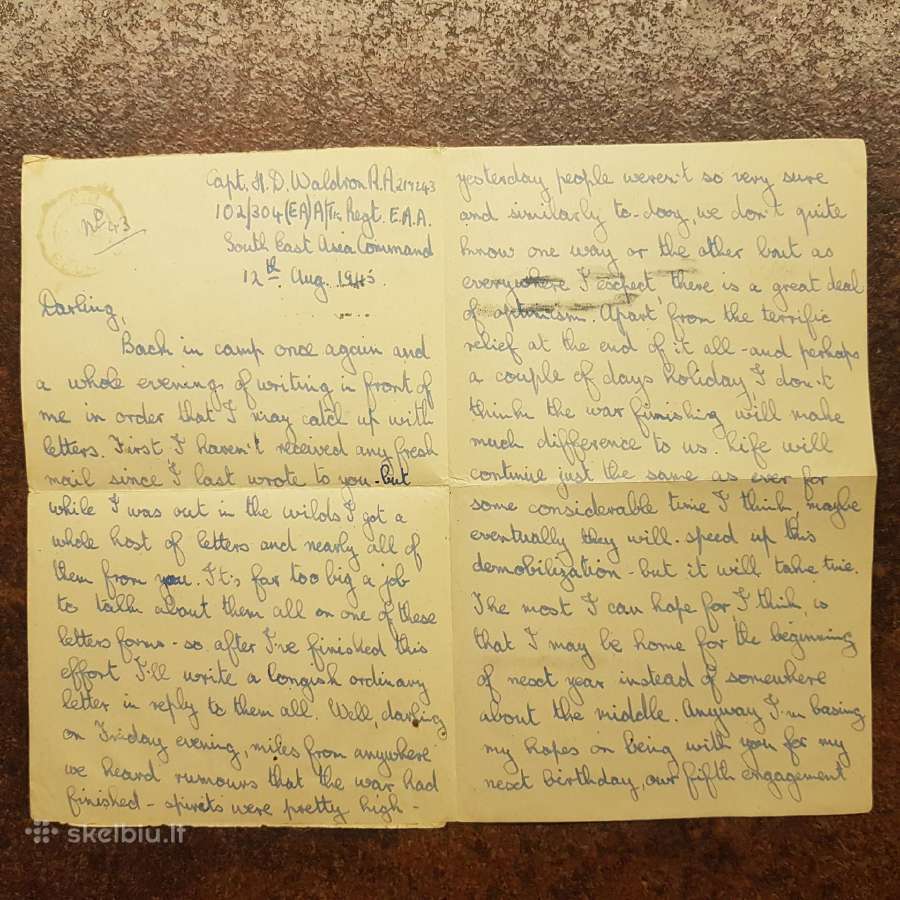 Capt. H. D. Waldron R.A 217243
102/304 (EA) A/Tk Regt. E.A.A.
South East Asia Command
12th Aug. 1945
No 43
Darling,
Back in camp once again and
a whole evenings of writing in front of
me in order that I may catch up with
letters. First I haven't received any fresh
mail since I last wrote to you - but
while I was out in the wilds I got a
whole host of letters and nearly all of
them from you. It's far too big a job
to talk about them all on one of these
letters forms - so after I've finished this
effort I'll write a longish ordinary
letter in reply to them all. Well, darling
on Friday evening, miles from anywhere
we heard rumours that the war had
finished - spirits were pretty high -
yesterday people weren't so very sure
and similarly to-day, we don't quite
know one way or the other but as
everywhere I expect, there is a great deal
of optimism. Apart from the terrific
relief at the end of it all - and perhaps
a couple of days holiday I don't
think the war finishing will make
much difference to us. Life will
continue just the same as ever for
some considerable time I think, maybe
eventually they will speed up this
demobilization - but it will take time.
The most I can hope for, I think, is
that I may be home for the beginning
of next year instead of somewhere
about the middle. Anyway I'm basing
my hopes on being with you for my
next birthday, our fifth engagement
skelbiu.lt